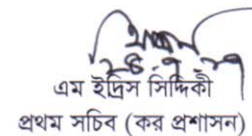 এম ইদ্রিস সিদ্দিকী
প্রথম সচিব (কর প্রশাসন)